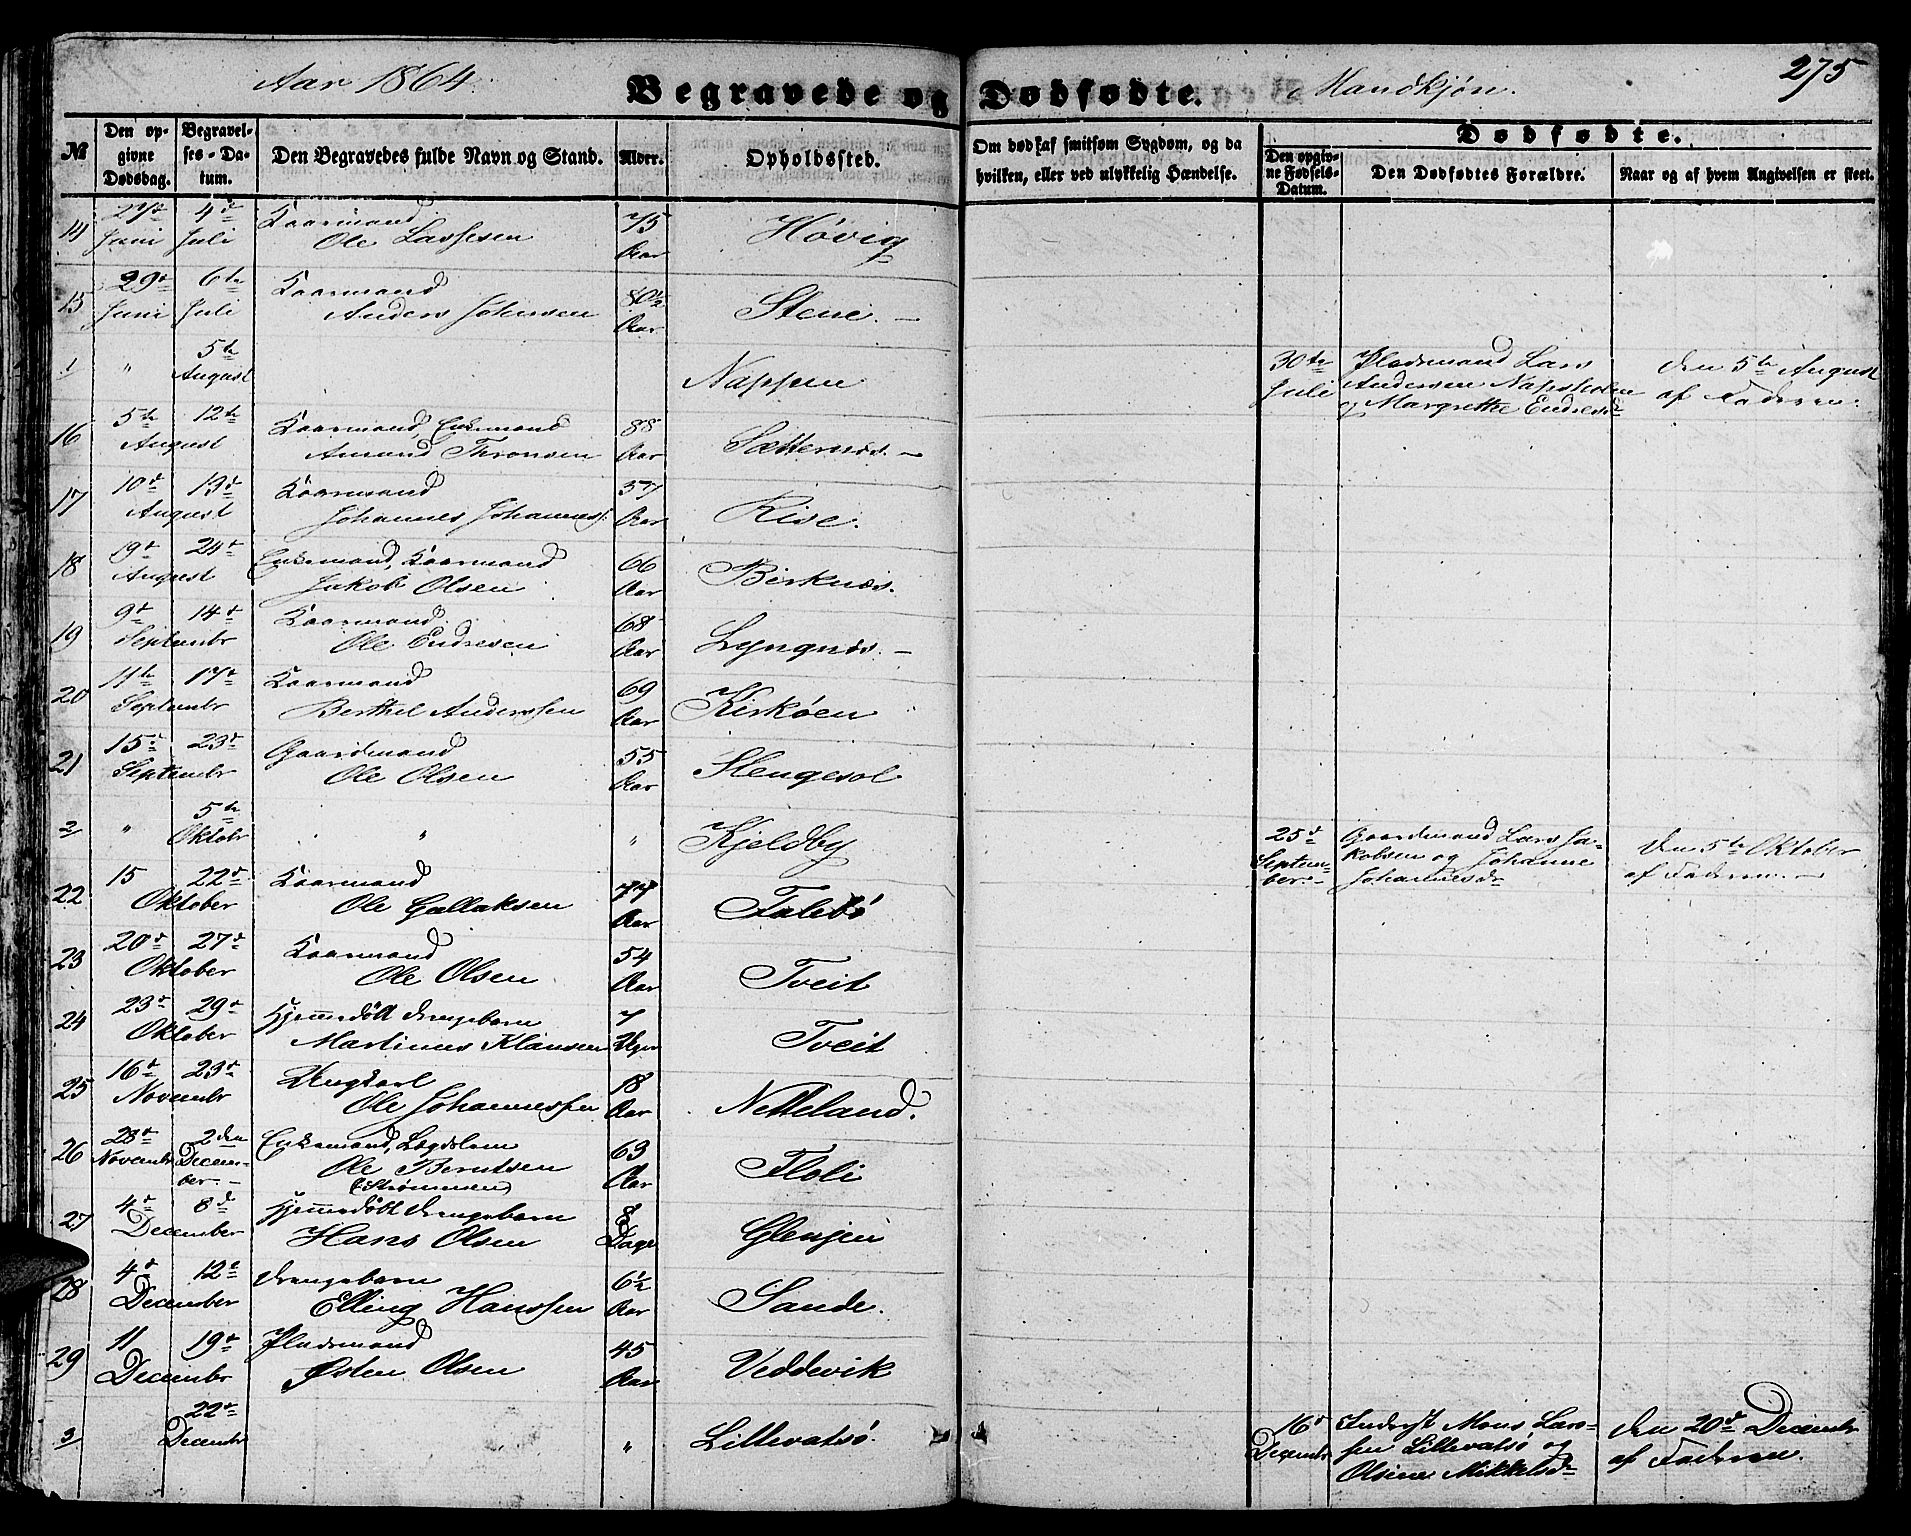 Aar 1864. Begravede og Dødfødte. Mandkjøn. 275
№ Den opgivne Dødsdag. Begravelses-Datum. Den Begravedes fulde Navn og Stand. Alder. Opholdssted. Om død af smitsom Sygdom, og da hvilken, eller ved ulykkelig Hændelse. Dødfødte. Den opgivne Fødsels-Datum. Den Dødfødtes Forældre. Naar og af hvem Angivelsen er skeet.
14 27de Juni 4de Juli Kaarmand Ole Lassesen 75 Aar Høvig
15 29de Juni 6te Juli Kaarmand Anders Johnsen 80½ Aar Stene. –
1 " 5te August Nappen 30te Juli Pladsmand Lars Andersen Napsholm og Margrethe Endresdr den 5te August af Faderen.
16 5te 12te August Kaarmand, Enkemand Amund Thronsen 88 Aar Sætternæs. –
17 10de 13de August Kaarmand Johannes Johanness. 57 Aar Rise.
18 19de 24de August Enkemand, Kaarmand Jakob Olsen 66 Aar Birknæs.
19 9de 14de Septembr Kaarmand. Ole Endresen 68 Aar Lyngnæs. –
20 11te 17de Septembr Kaarmand Berthel Anderssen 69 Aar Kirkøen
21 15de 23de Septembr Gaardmand Ole Olsen 55 Aar Slengesol
2 " 5te Oktobr " " Kjeldby 25de September. – Gaardmand Lars Jakobsen og Johanne Johannesdr Den 5te Oktober af Faderen. –
22 15 22de Oktober Kaarmand Ole Gallaksen 77 Aar Falebø
23 20de 27de Oktober Kaarmand Ole Olsen 54 Aar Tveit
24 23de 29de Oktober Hjemmedøbt Drengebarn Martinus Klausen 7 Uger Tveit
25 16de 23de Novembr Ungkarl Ole Johannessen 18 Aar Netteland.
26 28de Novembr 2den December. – Enkemand, Lægdslem Ole Berntsen (Strømmen) 63 Aar Floli
27 4de 8de December Hjemmedøbt Drengebarn Hans Olsen 8 Dage Glenjen
28 4de 12te December Drengebarn Elling Hanssen 6½ Aar Sande.
29 11 19de Decembr Pladsmand Østen Olsen 45 Aar Veddevik
3 22de Decembr " Lillevatsø. 16de Decembr Inderst Mons Larssen Lillevatsø og Olsine Mikkelsdr den 20de Decembr af Faderen.